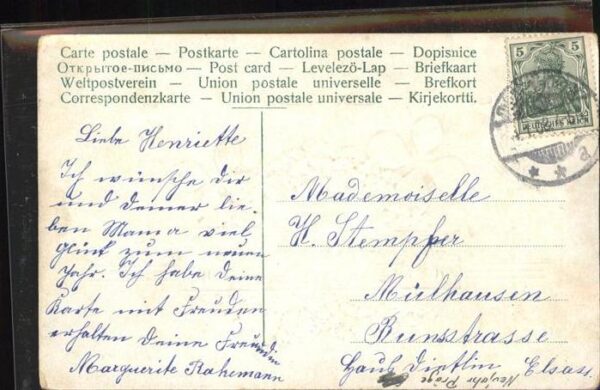 Carte postale — Postkarte — Cartolina postale — Dopisnice
Открытое-письмо — Post card — Levelezö-Lap — Briefkaart
Weltpostverein — Union postale universelle — Brefkort
Correspondenzkarte — Union postale universale — Kirjekortti.
5 5
DEUTSCHES REICH
Liebe Henriette
Ich wünsche Dir
und deiner lie-
ben Mama viel
Glück zum neuen
Jahr. Ich habe deine
Karte mit Freuden
erhalten Deine Freundin
Marguerite Rahemann
Mademoiselle
H. Stempfer
Mülhausen
Runsstrasse
Elsass
Neujahr Präge